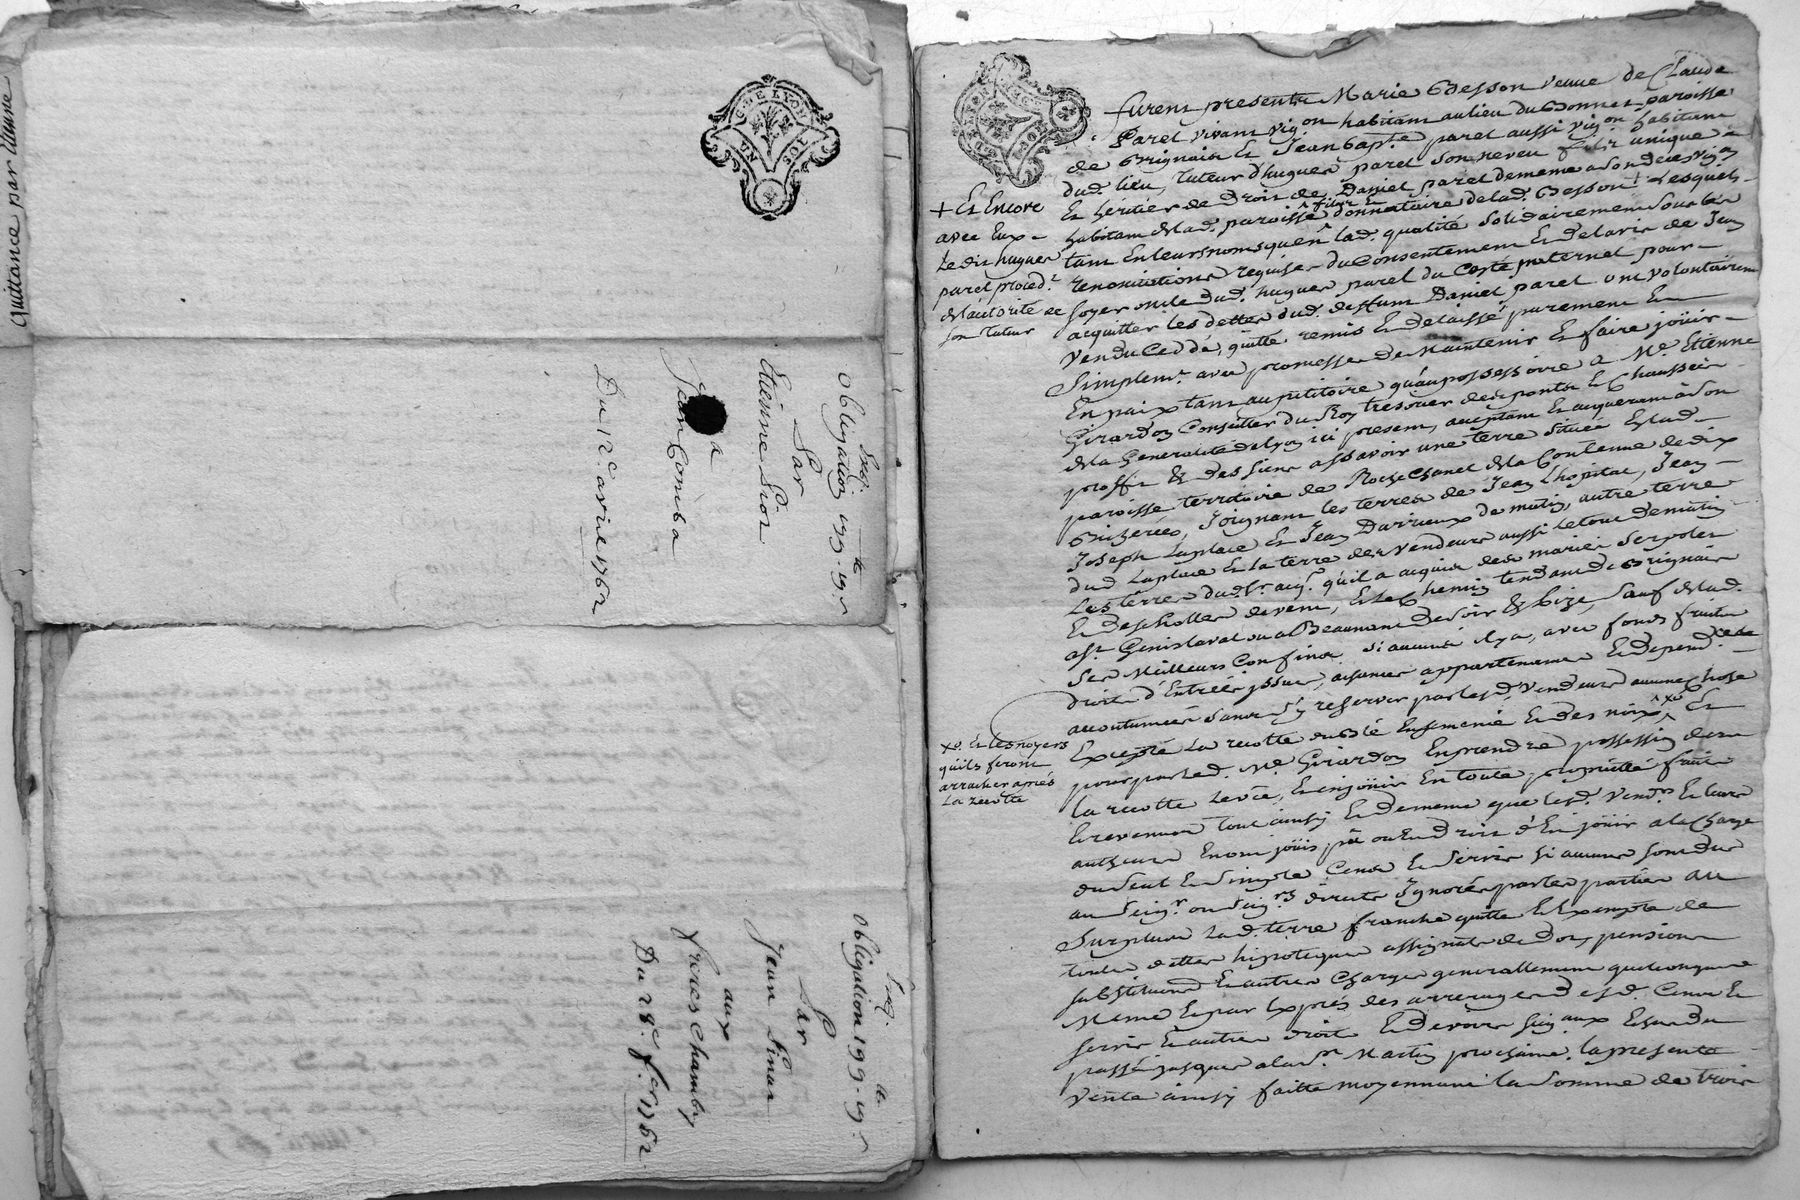 Quittance par Etienne
G. DE LYON
Obligation 199.19.s
Par
Etienne Prior
a
Jean Comba
Du 12e avril 1762
Obligation 199.19.s
Par
Jean Pinan
aux
freres Chambry
Du 28e fer 1762
furent presents Marie Besson veuve de Claude
Parel vivant vigon habitant au lieu du Bonnet paroisse
de Brignais et Jean Bapte parel aussi vigon habitant
dud. lieu, tuteur d'hugues parel son neveu fils unique
et héritier de droit de Daniel parel de meme
habitant de lad. paroisse donnataire de lad. Besson + Lesquels
tant en leurs noms qu'en lad. qualité solidairement sous les
renonciations requises du Consentement et de l'avis de Jean
oncle dud. hugues parel du Costé paternel pour
acquitter les dettes dud. deffunt Daniel parel ont volontairemt
vendu Ceddé, quitte remis et delaissé purement et
Simplemt. avec promesse de Maintenir et faire joüir
En paix tant au petitoire qu'au possessoire a Me. Etienne
Girardon Conseiller du Roy tresorier des ponts et Chaussées
de la Generalité de lyon ici present, acceptant et acquerant a son
proffit et des siens assavoir une terre située en lad.
paroisse territoire de Roche Chanel de la Contenue de dix
Bicherées, Joignant les terres de Jean L'hopital, Jean
Joseph Laplace et Jean Darrieux de matin, autre terre
dud Laplace et la terre des vendeurs aussi de matin
Les terres dud. sr. acqr. qu'il a acquis des mariés
de vent, et le Chemin tendant de Brignais
a st. Genis laval ou a Beaunant de soir et bize, sauf de lad.
Ses Meilleurs Confins si aucuns il y a, avec fonds fruits
droits d'Entrées issues, aisances appartenances et depend.ces
accoutumées sans s'y reserver par lesd. vendeurs aucune chose
Excepté la recolte du blé Ensemencé et des noix Et
pour par led. Me. Girardon En prendre possession des
la recolte Levée, et en joüir En toute proprieté fruits
et revenus tout ainsy et de meme que lesd. vendrs. et leurs
autheurs En ont joüis, pû ou eu droit d'En joüir a la Charge
du seul et simple Cens et servis si aucuns sont dus
au Seigr. ou Seigrs directs Ignorés par les parties au
Surplus lad. terre franche quitte et Exempte de
toutes dettes hipoteques assignats de dot, pensions
substitutions et autres Charges generallement quelconques
Meme et par Exprés des arrerages desd. Cens et
servis et autres droits et devoirs seigaux echus du
passé jusques a la st Martin prochaine. la presente
vente ainsy faitte moyennant la Somme de trois
+ Et Encore
avec Eux
Le dit hugues
parel proced.t
de l'autorité de
son tuteur
xo. et les noyers
qu'ils feront
arracher aprés
la recolte